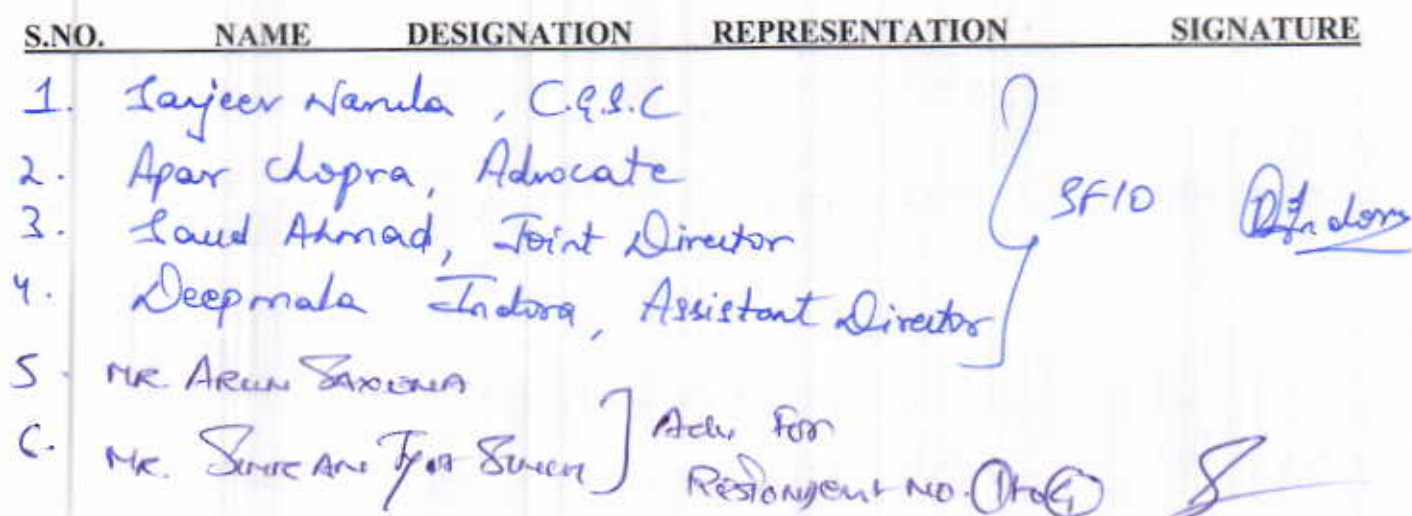 S.NO. NAME DESIGNATION REPRESENTATION SIGNATURE
1. Sanjeev Narula, C.G.S.C
2. Apar Chopra, Advocate
3. Saud Ahmad, Joint Director
SFIO
4. Deepmala Indora, Assistant Director
5. MR. ARUN SAXENA
Adv. For
6. MR.
Respondent No.